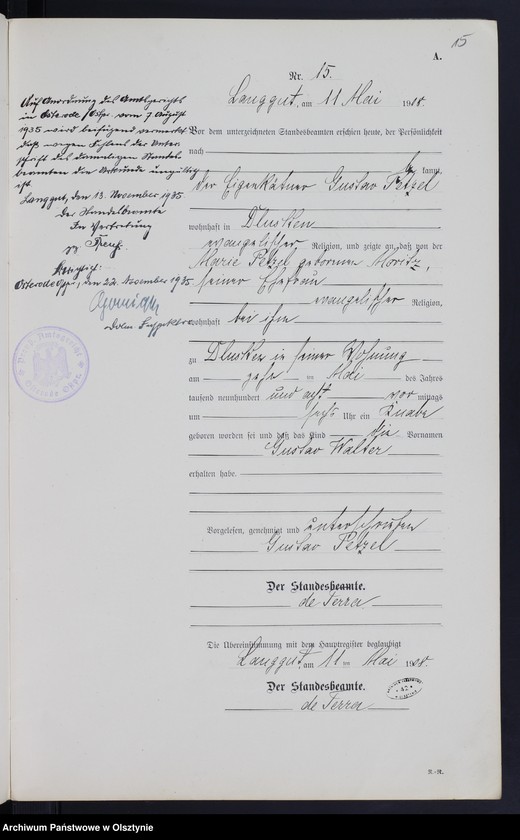 15
A.
Nr. 15.
Langgut, am 11 Mai 1908.
Vor dem unterzeichneten Standesbeamten erschien heute, der Persönlichkeit
nach
kannt,
der Eigenkätner Gustav Petzel
wohnhaft in Dlusken
evangelischer Religion, und zeigte an, daß von der
Marie Petzel geborenen Moritz,
seiner Ehefrau
evangelischer Religion,
wohnhaft bei ihm
zu Dlusken in seiner Wohnung
am zehn ten Mai des Jahres
tausend neunhundert und acht vor mittags
um sechs Uhr ein Knabe
geboren worden sei und daß das Kind die Vornamen
Gustav Walter
erhalten habe.
Vorgelesen, genehmigt und unterschrieben
Gustav Petzel
Der Standesbeamte.
de Terra
Die Übereinstimmung mit dem Hauptregister beglaubigt
Langgut, am 11 ten Mai 1908.
Der Standesbeamte.
de Terra
Auf Anordnung des Amtsgerichts
in Osterode Ostpr vom 7 August
1935 wird beifügend vermerkt
daß wegen Fehlens der Unter
schrift des damaligen Standes
beamten die Urkunde ungültig
ist.
Langgut, den 13. November 1935.
Der Standesbeamte
In Vertretung
gz.
Osterode Opr, den 22. November 1935
42
E.-R.
Archiwum Państwowe w Olsztynie